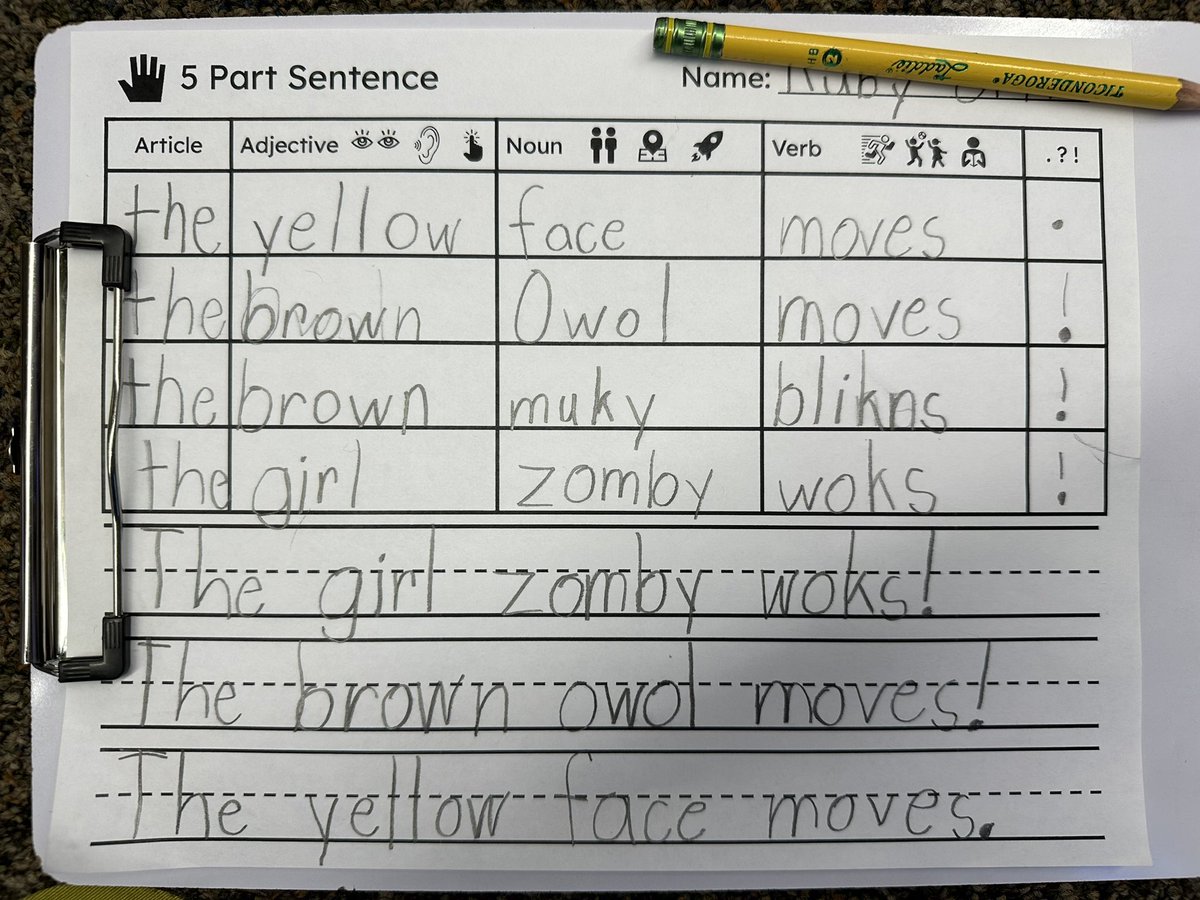 5 Part Sentence Name: Ruby
TICONDEROGA® Laddie HB 2
Article Adjective Noun Verb .?!
the yellow face moves .
the brown Owol moves !
the brown muky blikns !
the girl zomby woks !
The girl zomby woks!
The brown owol moves!
The yellow face moves.